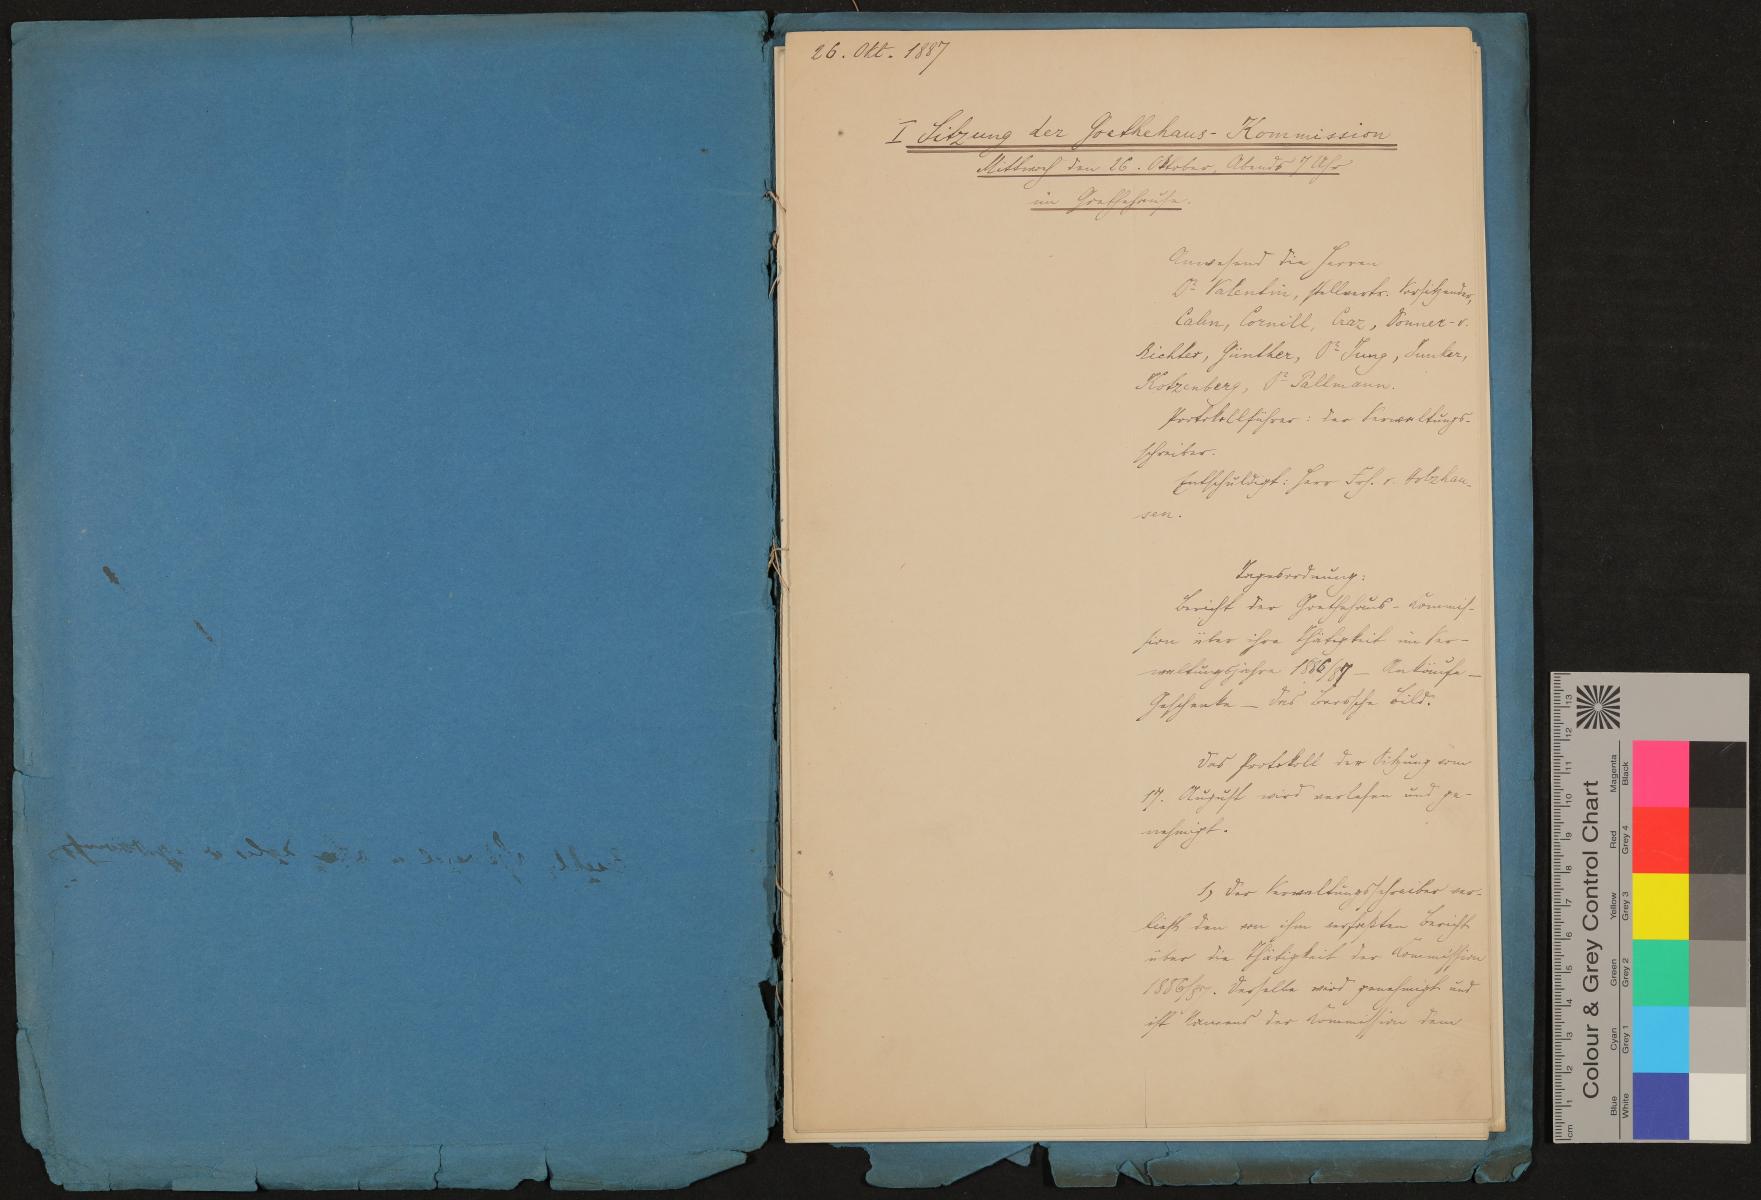 26. Okt. 1887
I Sitzung der Goethehaus-Kommission
Mittwoch den 26. Oktober, Abends 7 Uhr
im Goethehause.
Anwesend die Herren
Dr. Valentin, stellvertr. Vorsitzender,
Cahn, Cornill, Craz, Donner-v.
Richter, Günther, Dr. Jung, Junker,
Kotzenberg, Dr. Pallmann.
Protokollführer: der Verwaltungs-
schreiber.
Entschuldigt: Herr Frh. v. Holzhau-
sen.
Tagesordnung:
Bericht der Goethehaus-Commis-
sion über ihre Thätigkeit im Ver-
waltungsjahre 1886/87 — Ankäufe —
Geschenke — das Bild.
Das Protokoll der Sitzung vom
17. August wird verlesen und ge-
nehmigt.
1, Der Verwaltungsschreiber ver-
liest den von ihm verfaßten Bericht
über die Thätigkeit der Commission
1886/87. Derselbe wird genehmigt und
ist Namens der Commission dem
Colour & Grey Control Chart
Blue Cyan Green Yellow Red Magenta
White Grey 1 Grey 2 Grey 3 Grey 4 Black
cm 1 2 3 4 5 6 7 8 9 10 11 12 13